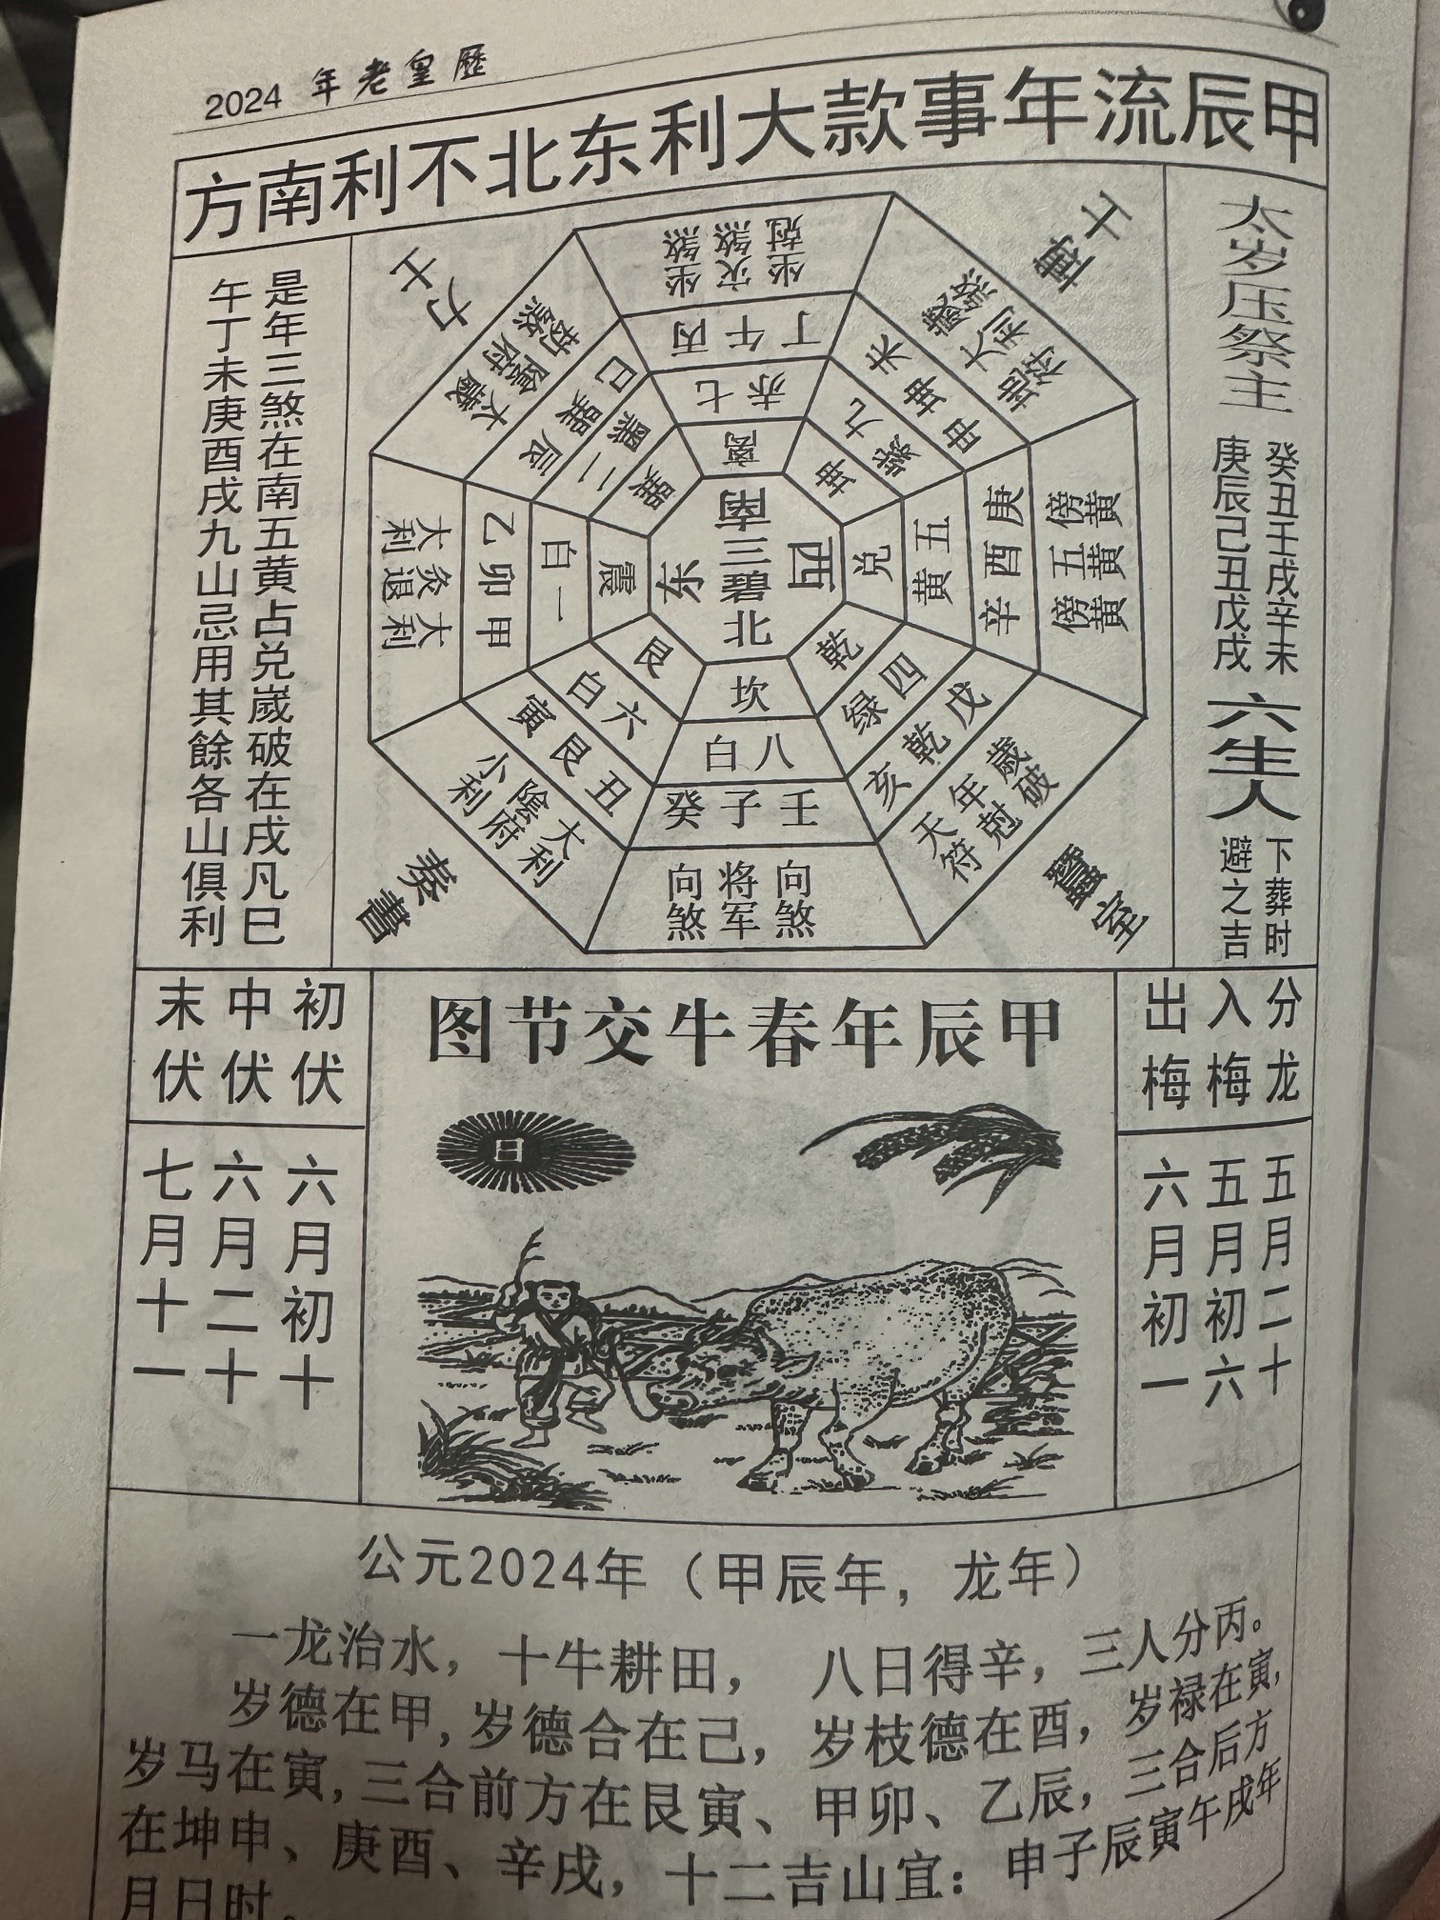 2024 年老皇歷
甲辰流年事款大利东北不利南方
太岁压祭主
癸丑壬戌辛未
庚辰己丑戊戌
六生人
下葬时
避之吉
博士
力士
奏書
蠶室
坐煞 灾煞 坐尅
丙午丁
七赤
离
歲煞 大利 地符
未坤申
九紫
坤
傍黄 五黄 傍黄
庚酉辛
五黄
兑
歲破 年尅 天符
戊乾亥
四绿
乾
向煞 将军 向煞
壬子癸
八白
坎
大利 陰府 小利
丑艮寅
六白
艮
大利 灸退 大利
甲卯乙
一白
震
太歲 陰府 劫煞
辰巽巳
二黑
巽
南
东 三碧 西
北
是年三煞在南五黄占兑嵗破在戌凡巳
午丁未庚酉戌九山忌用其餘各山俱利
分龙
五月二十
入梅
五月初六
出梅
六月初一
甲辰年春牛交节图
日
初伏
六月初十
中伏
六月二十
末伏
七月十一
公元2024年（甲辰年，龙年）
一龙治水，十牛耕田， 八日得辛，三人分丙。
岁德在甲，岁德合在己，岁枝德在酉，岁禄在寅，
岁马在寅，三合前方在艮寅、甲卯、乙辰，三合后方
在坤申、庚酉、辛戌，十二吉山宜：申子辰寅午戌年
月日时。